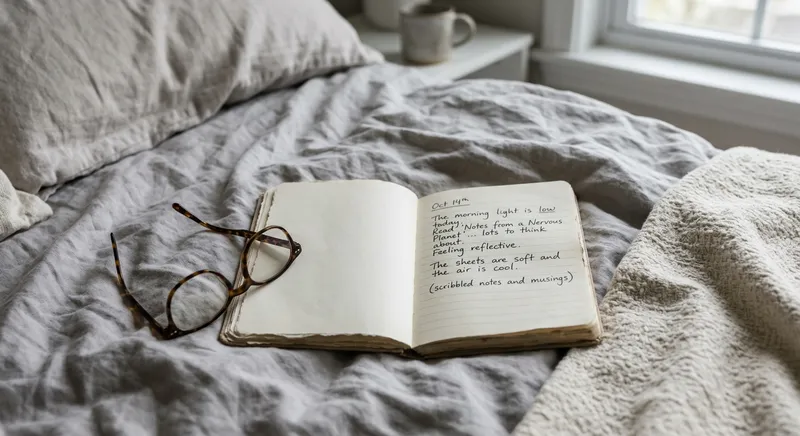 Oct 14th
The morning light is low
today.
Read 'Notes from a Nervous
Planet' ... lots to think
about.
Feeling reflective.
The sheets are soft and
the air is cool.
(scribbled notes and musings)